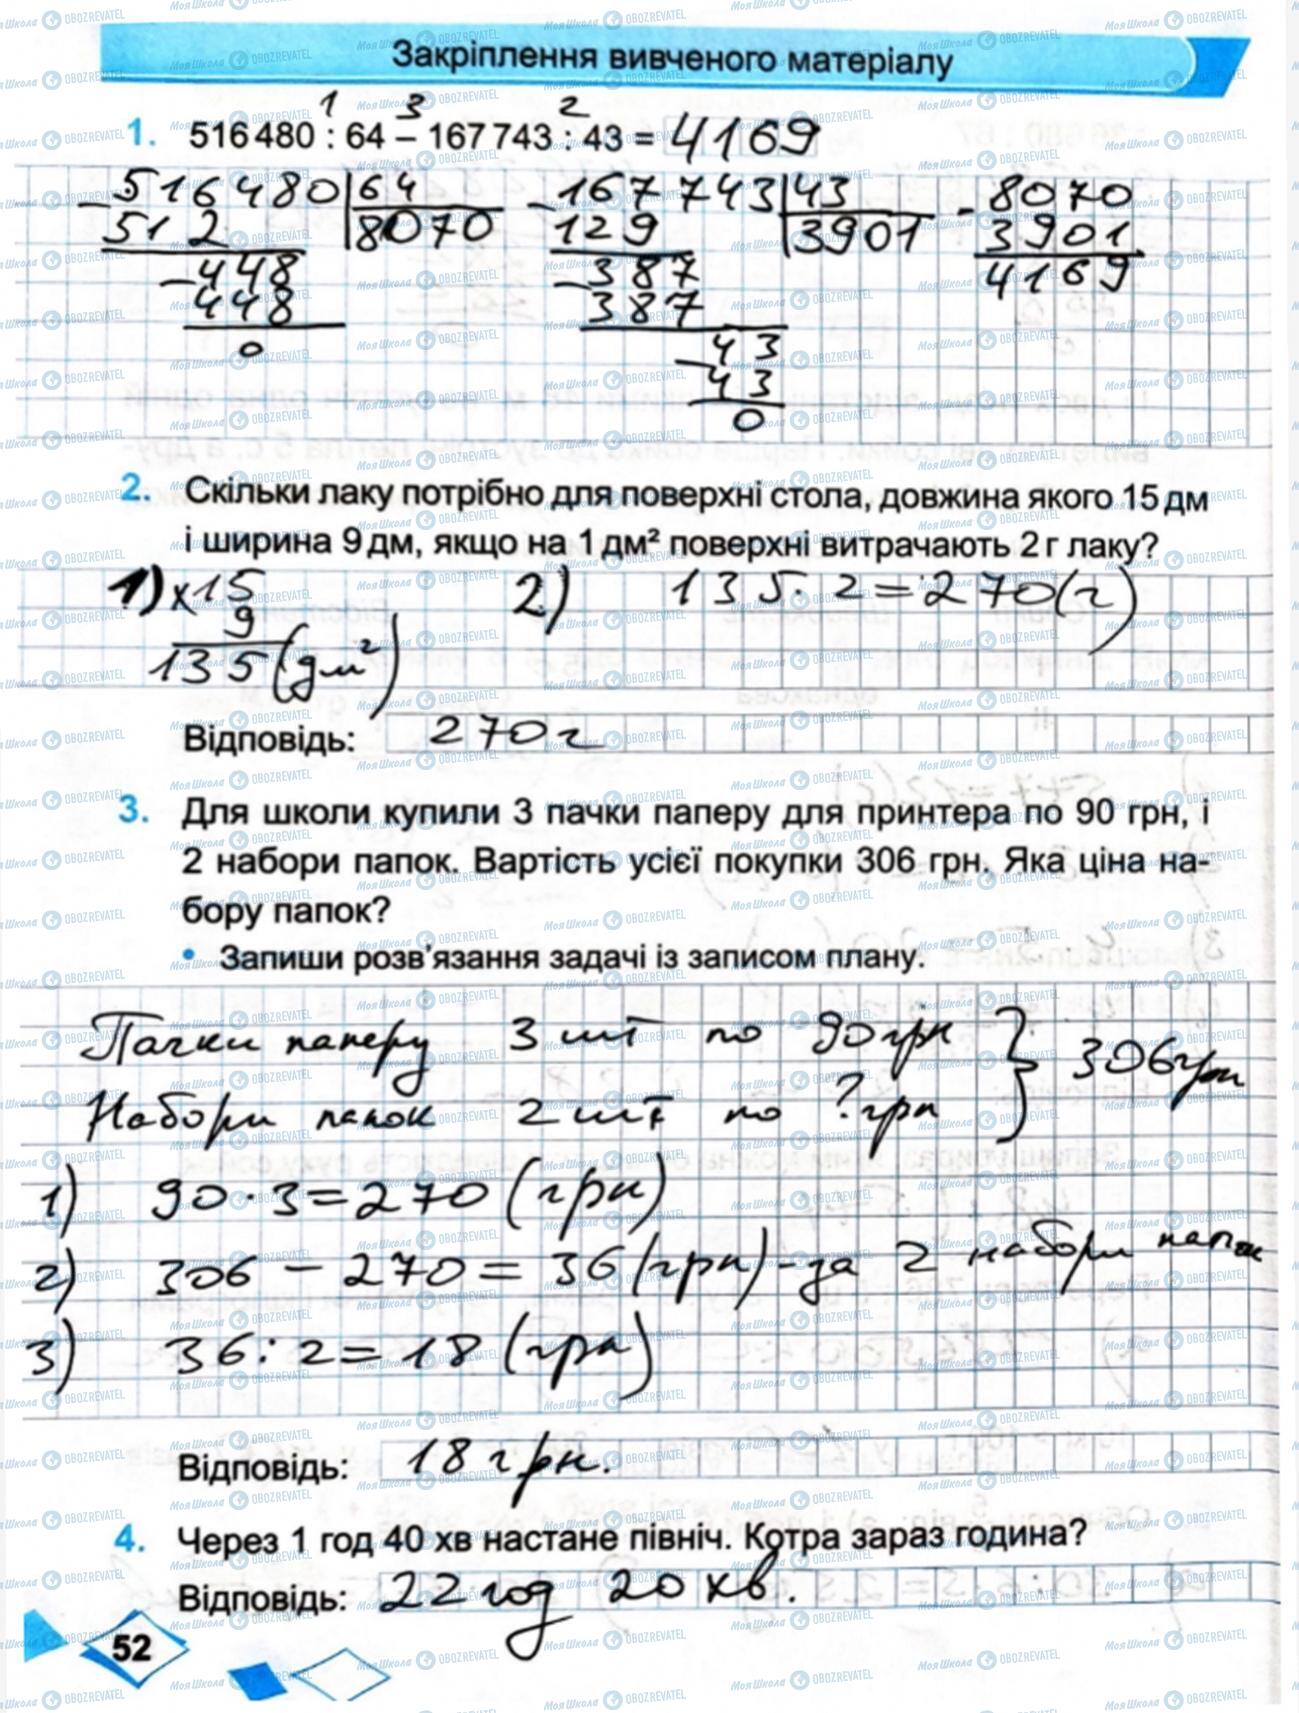 Закріплення вивченого матеріалу
1 3 2
1. 516 480 : 64 – 167 743 : 43 = 4169
516480 64 167743 43 8070
512 8070 129 3901 3901
448 387 4169
448 387
0 43
43
0
2. Скільки лаку потрібно для поверхні стола, довжина якого 15 дм
і ширина 9 дм, якщо на 1 дм² поверхні витрачають 2 г лаку?
1) х 15 2) 135 · 2 = 270 (г)
9
135 (дм²)
Відповідь: 270 г
3. Для школи купили 3 пачки паперу для принтера по 90 грн, і
2 набори папок. Вартість усієї покупки 306 грн. Яка ціна на-
бору папок?
• Запиши розв'язання задачі із записом плану.
Пачки паперу 3 шт по 90 грн } 306 грн
Набори папок 2 шт по ? грн
1) 90 · 3 = 270 (грн)
2) 306 – 270 = 36 (грн) - за 2 набори папок
3) 36 : 2 = 18 (грн)
Відповідь: 18 грн.
4. Через 1 год 40 хв настане північ. Котра зараз година?
Відповідь: 22 год 20 хв.
52
МояШкола OBOZREVATEL